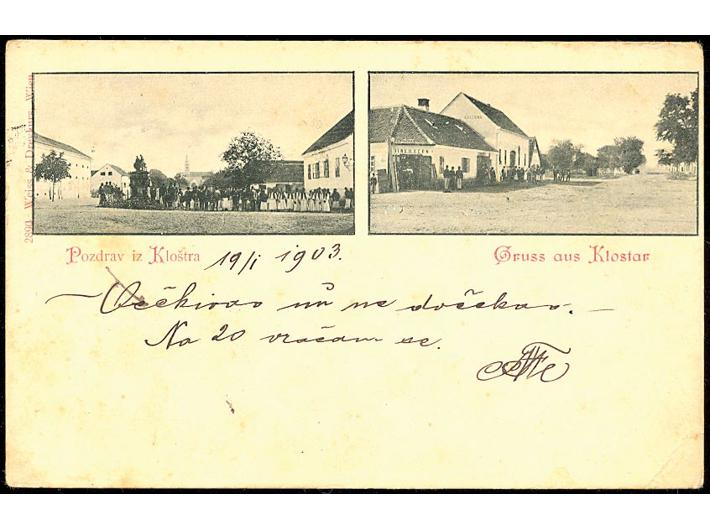 2890 Weiss & Dreykurs, Wien
Pozdrav iz Kloštra
19/I 1903.
Gruss aus Klostar
– Očekivao nu ne dočekao. –
Na 20 vraćam se.